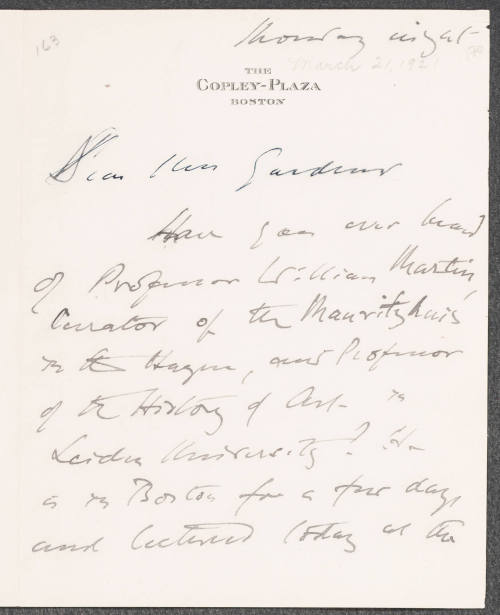 163
Monday night
March 21, 1921
THE
COPLEY-PLAZA
BOSTON
Dear Mrs Gardner
Have you ever heard
of Professor William Martin,
Curator of the Mauritzhuis
in the Hague, and Professor
of the History of Art in
Leiden University? He
is in Boston for a few days
and lectured today at the